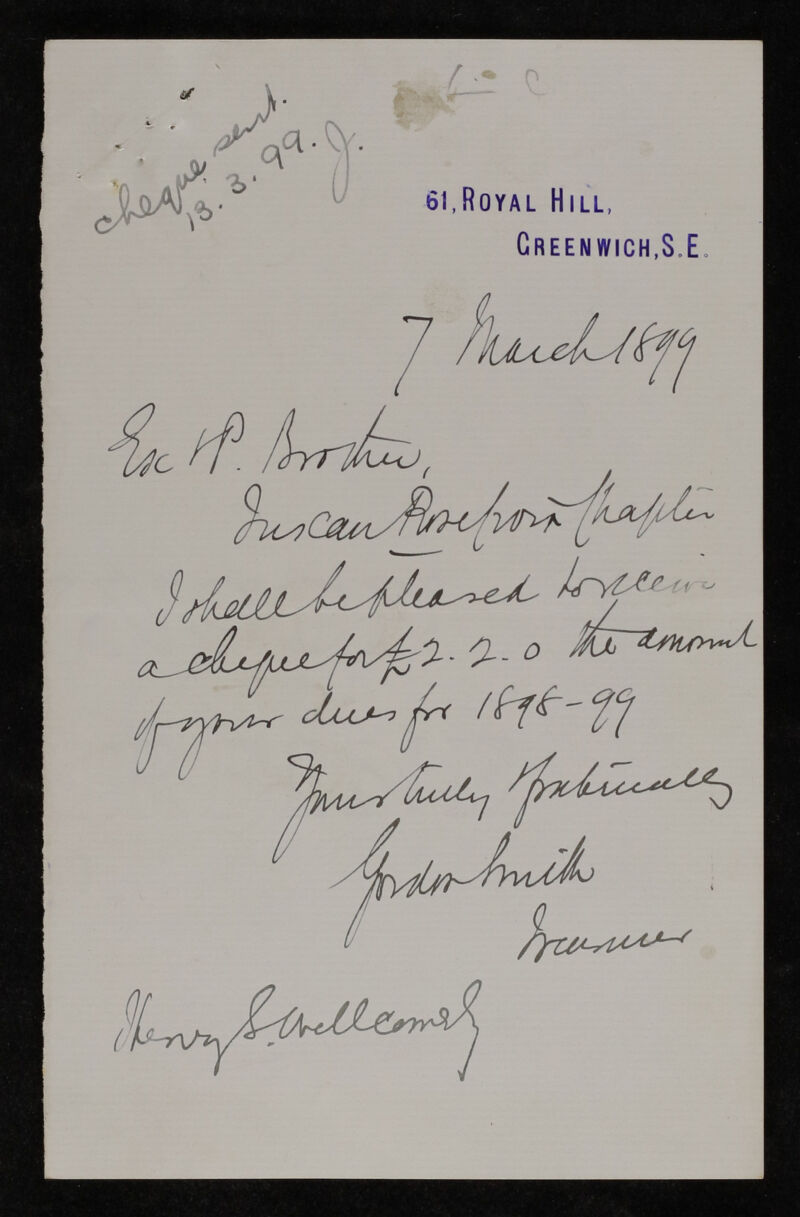 cheque sent.
13.3.99. J.
61, ROYAL HILL,
GREENWICH, S.E.
7 March 1899
Ex & P. Brother,
Tuscan Rose Croix Chapter
I shall be pleased to receive
a cheque for £2.2.0 the amount
of your dues for 1898-99
Yours truly & fraternally
Gordon Smith
Treasurer
Henry S. Wellcome Esq